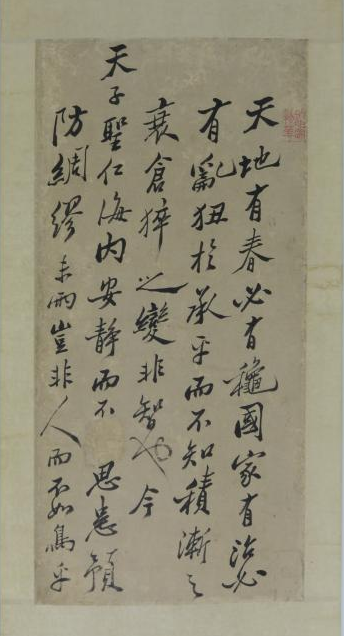 天地有春必有龝國家有治必
有亂狃於承平而不知積漸之
衰倉猝之變非智也今
天子聖仁海内安靜而不思患預
防綢繆未雨豈非人而不如鳥乎